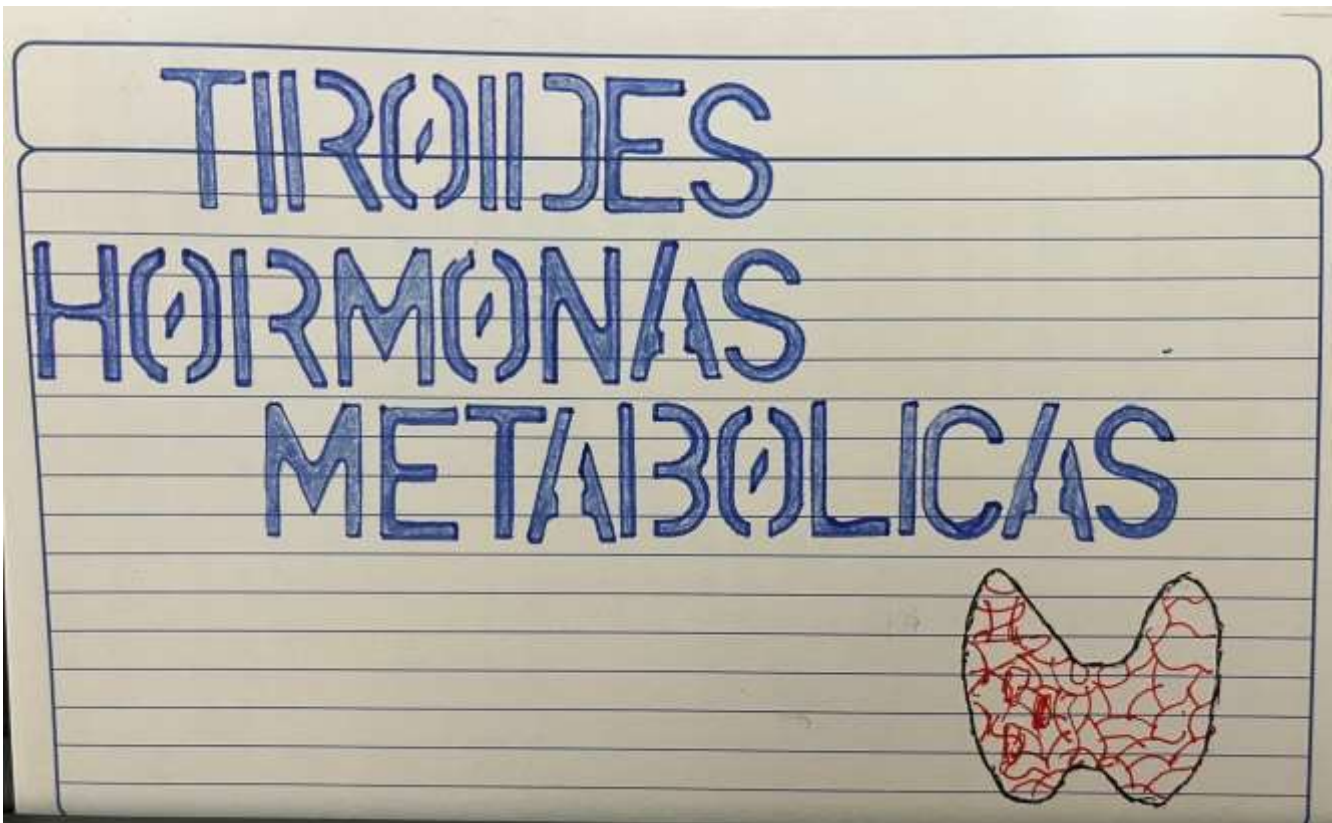 TIROIDES
HORMONAS
METABOLICAS